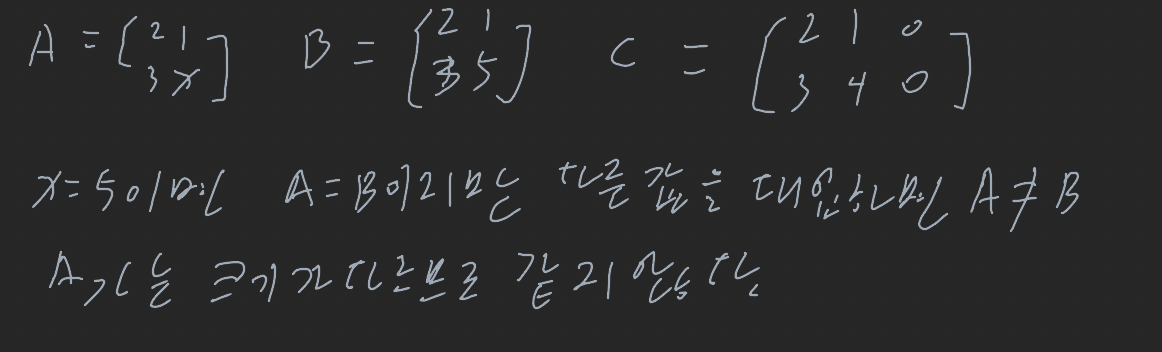 A = [2 1 B = [2 1 C = [2 1 0
3 x] 3 5] 3 4 0]
x=5이면 A=B이지만 다른 값을 대입하면 A≠B
A, C는 크기가 다르므로 같지 않다